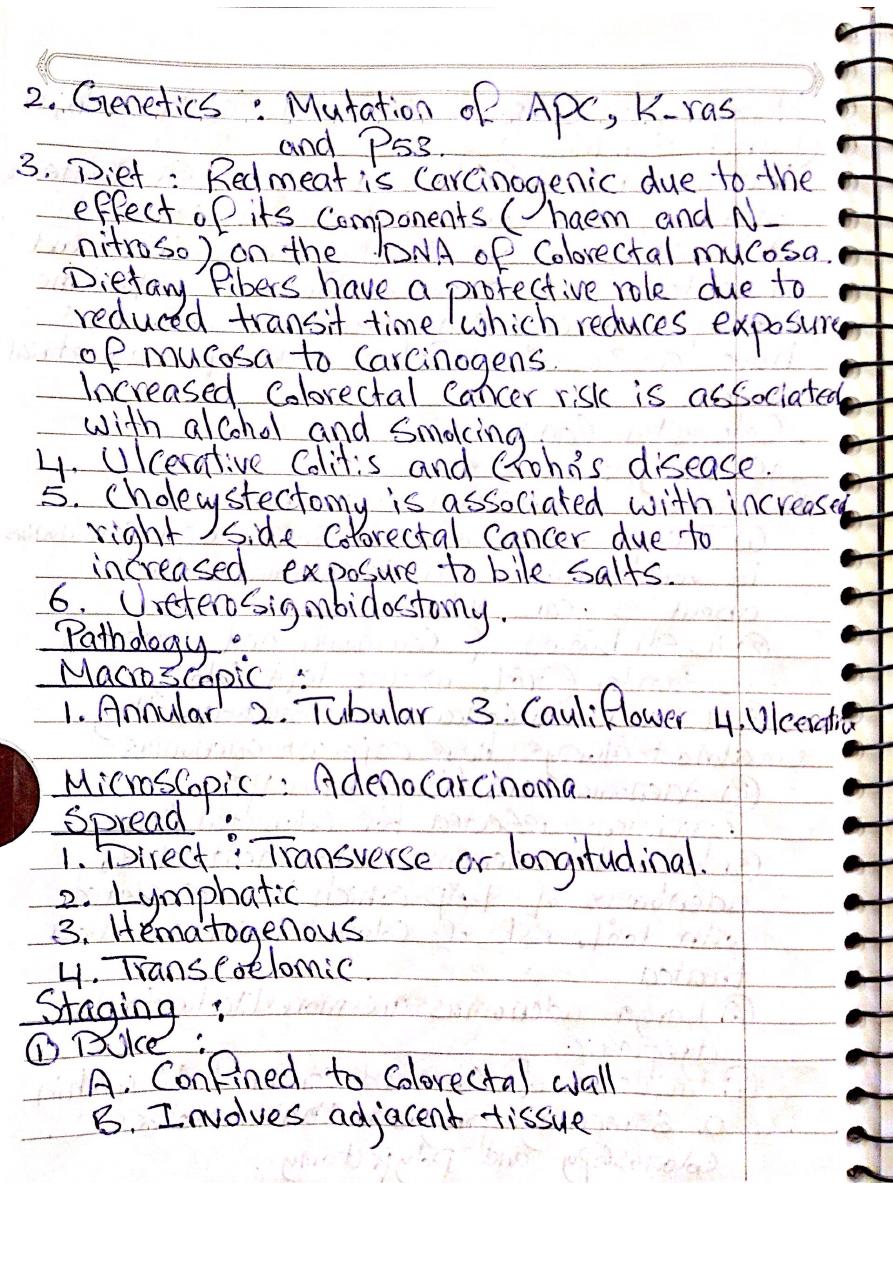 2. Genetics : Mutation of APC, K-ras
and P53.
3. Diet : Red meat is carcinogenic due to the
effect of its components ( haem and N-
nitroso) on the DNA of colorectal mucosa.
Dietary fibers have a protective role due to
reduced transit time which reduces exposure
of mucosa to carcinogens.
Increased colorectal cancer risk is associated
with alcohol and smoking.
4. Ulcerative colitis and Crohn's disease.
5. Cholecystectomy is associated with increased
right side colorectal cancer due to
increased exposure to bile salts.
6. Ureterosigmoidostomy.
Pathology :
Macroscopic :
1. Annular 2. Tubular 3. Cauliflower 4. Ulcerative
Microscopic : Adenocarcinoma.
Spread :
1. Direct : Transverse or longitudinal.
2. Lymphatic
3. Hematogenous
4. Transcoelomic.
Staging :
① Duke :
A. Confined to colorectal wall
B. Involves adjacent tissue